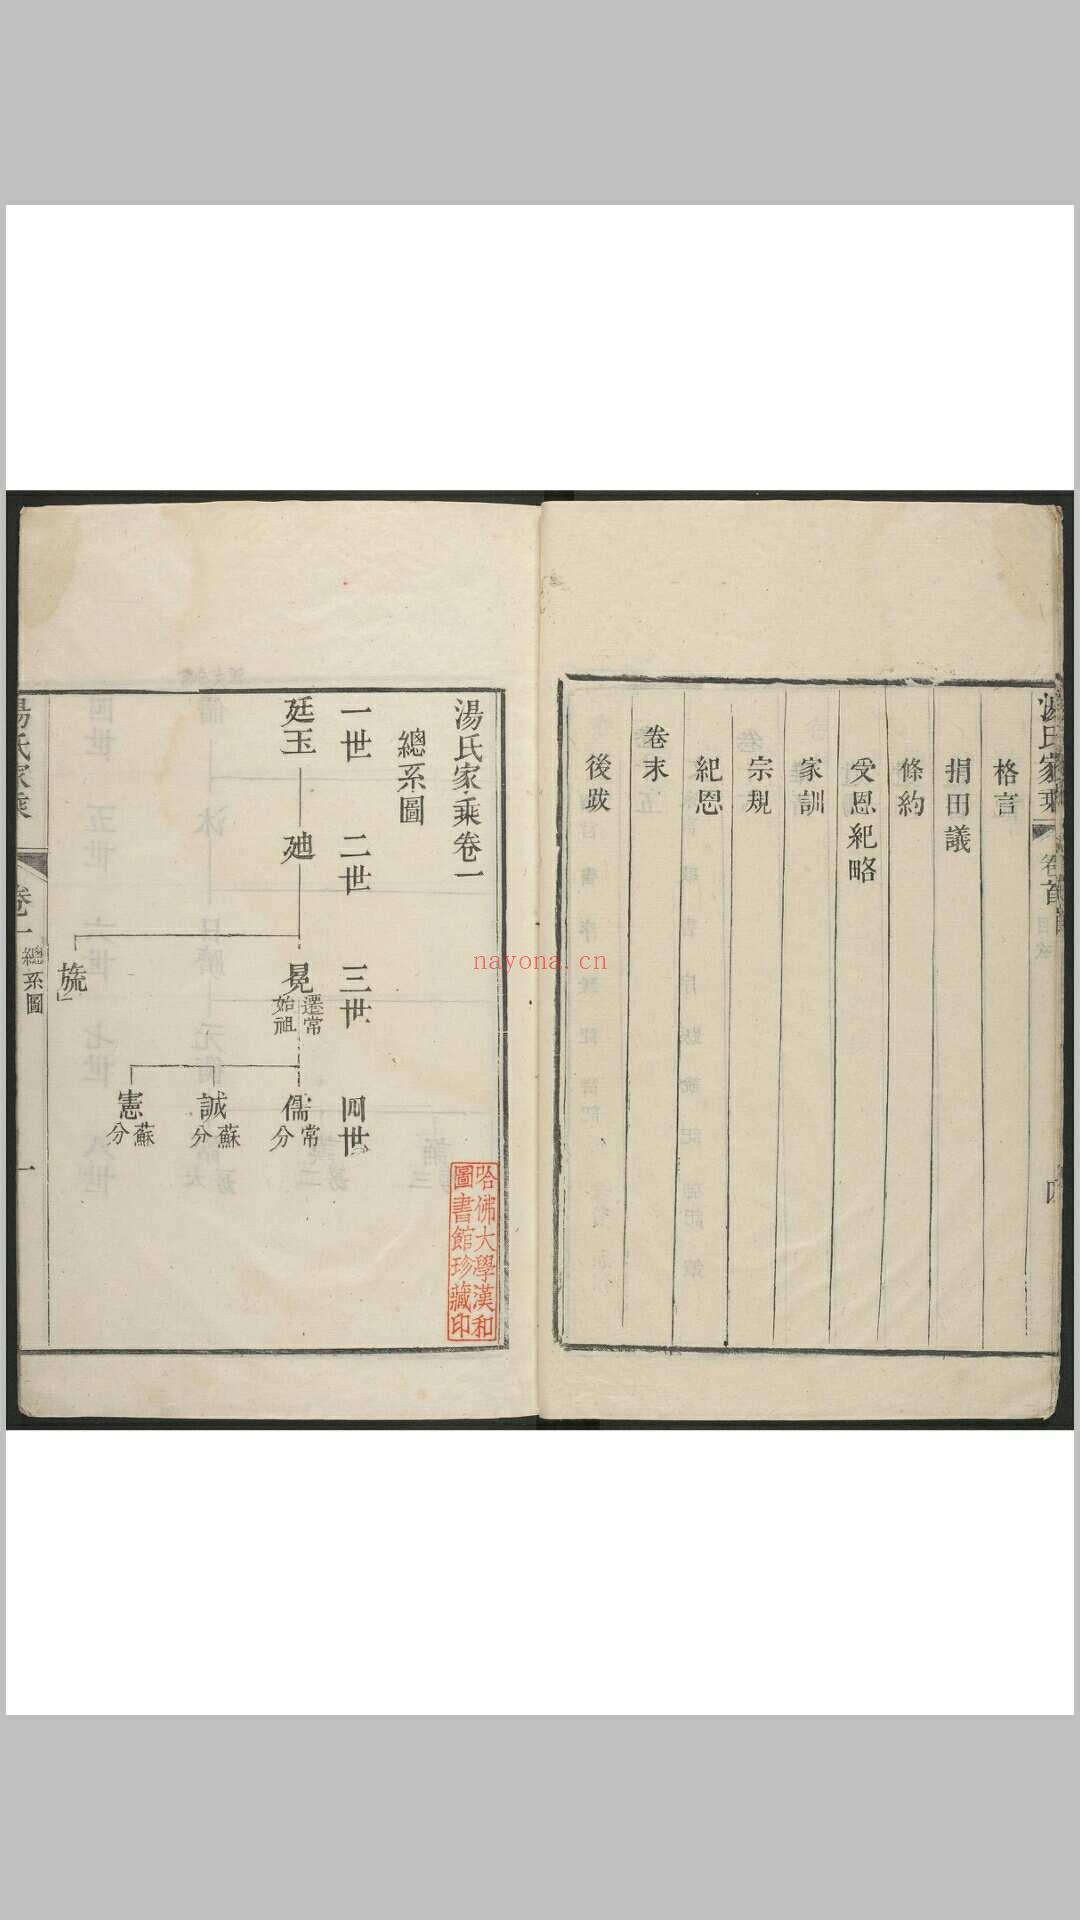 湯氏家乘
卷首
目錄
四
格言
捐田議
條約
受恩紀略
家訓
宗規
紀恩
卷末
後跋
湯氏家乘卷一
總系圖
一世 二世 三世 四世
廷玉 廸 晃 遷常始祖 儒 常分
誠 蘇分
憲 蘇分
旒
湯氏家乘
卷一
總系圖
一
哈佛大學漢和
圖書館珍藏印
nayona.cn